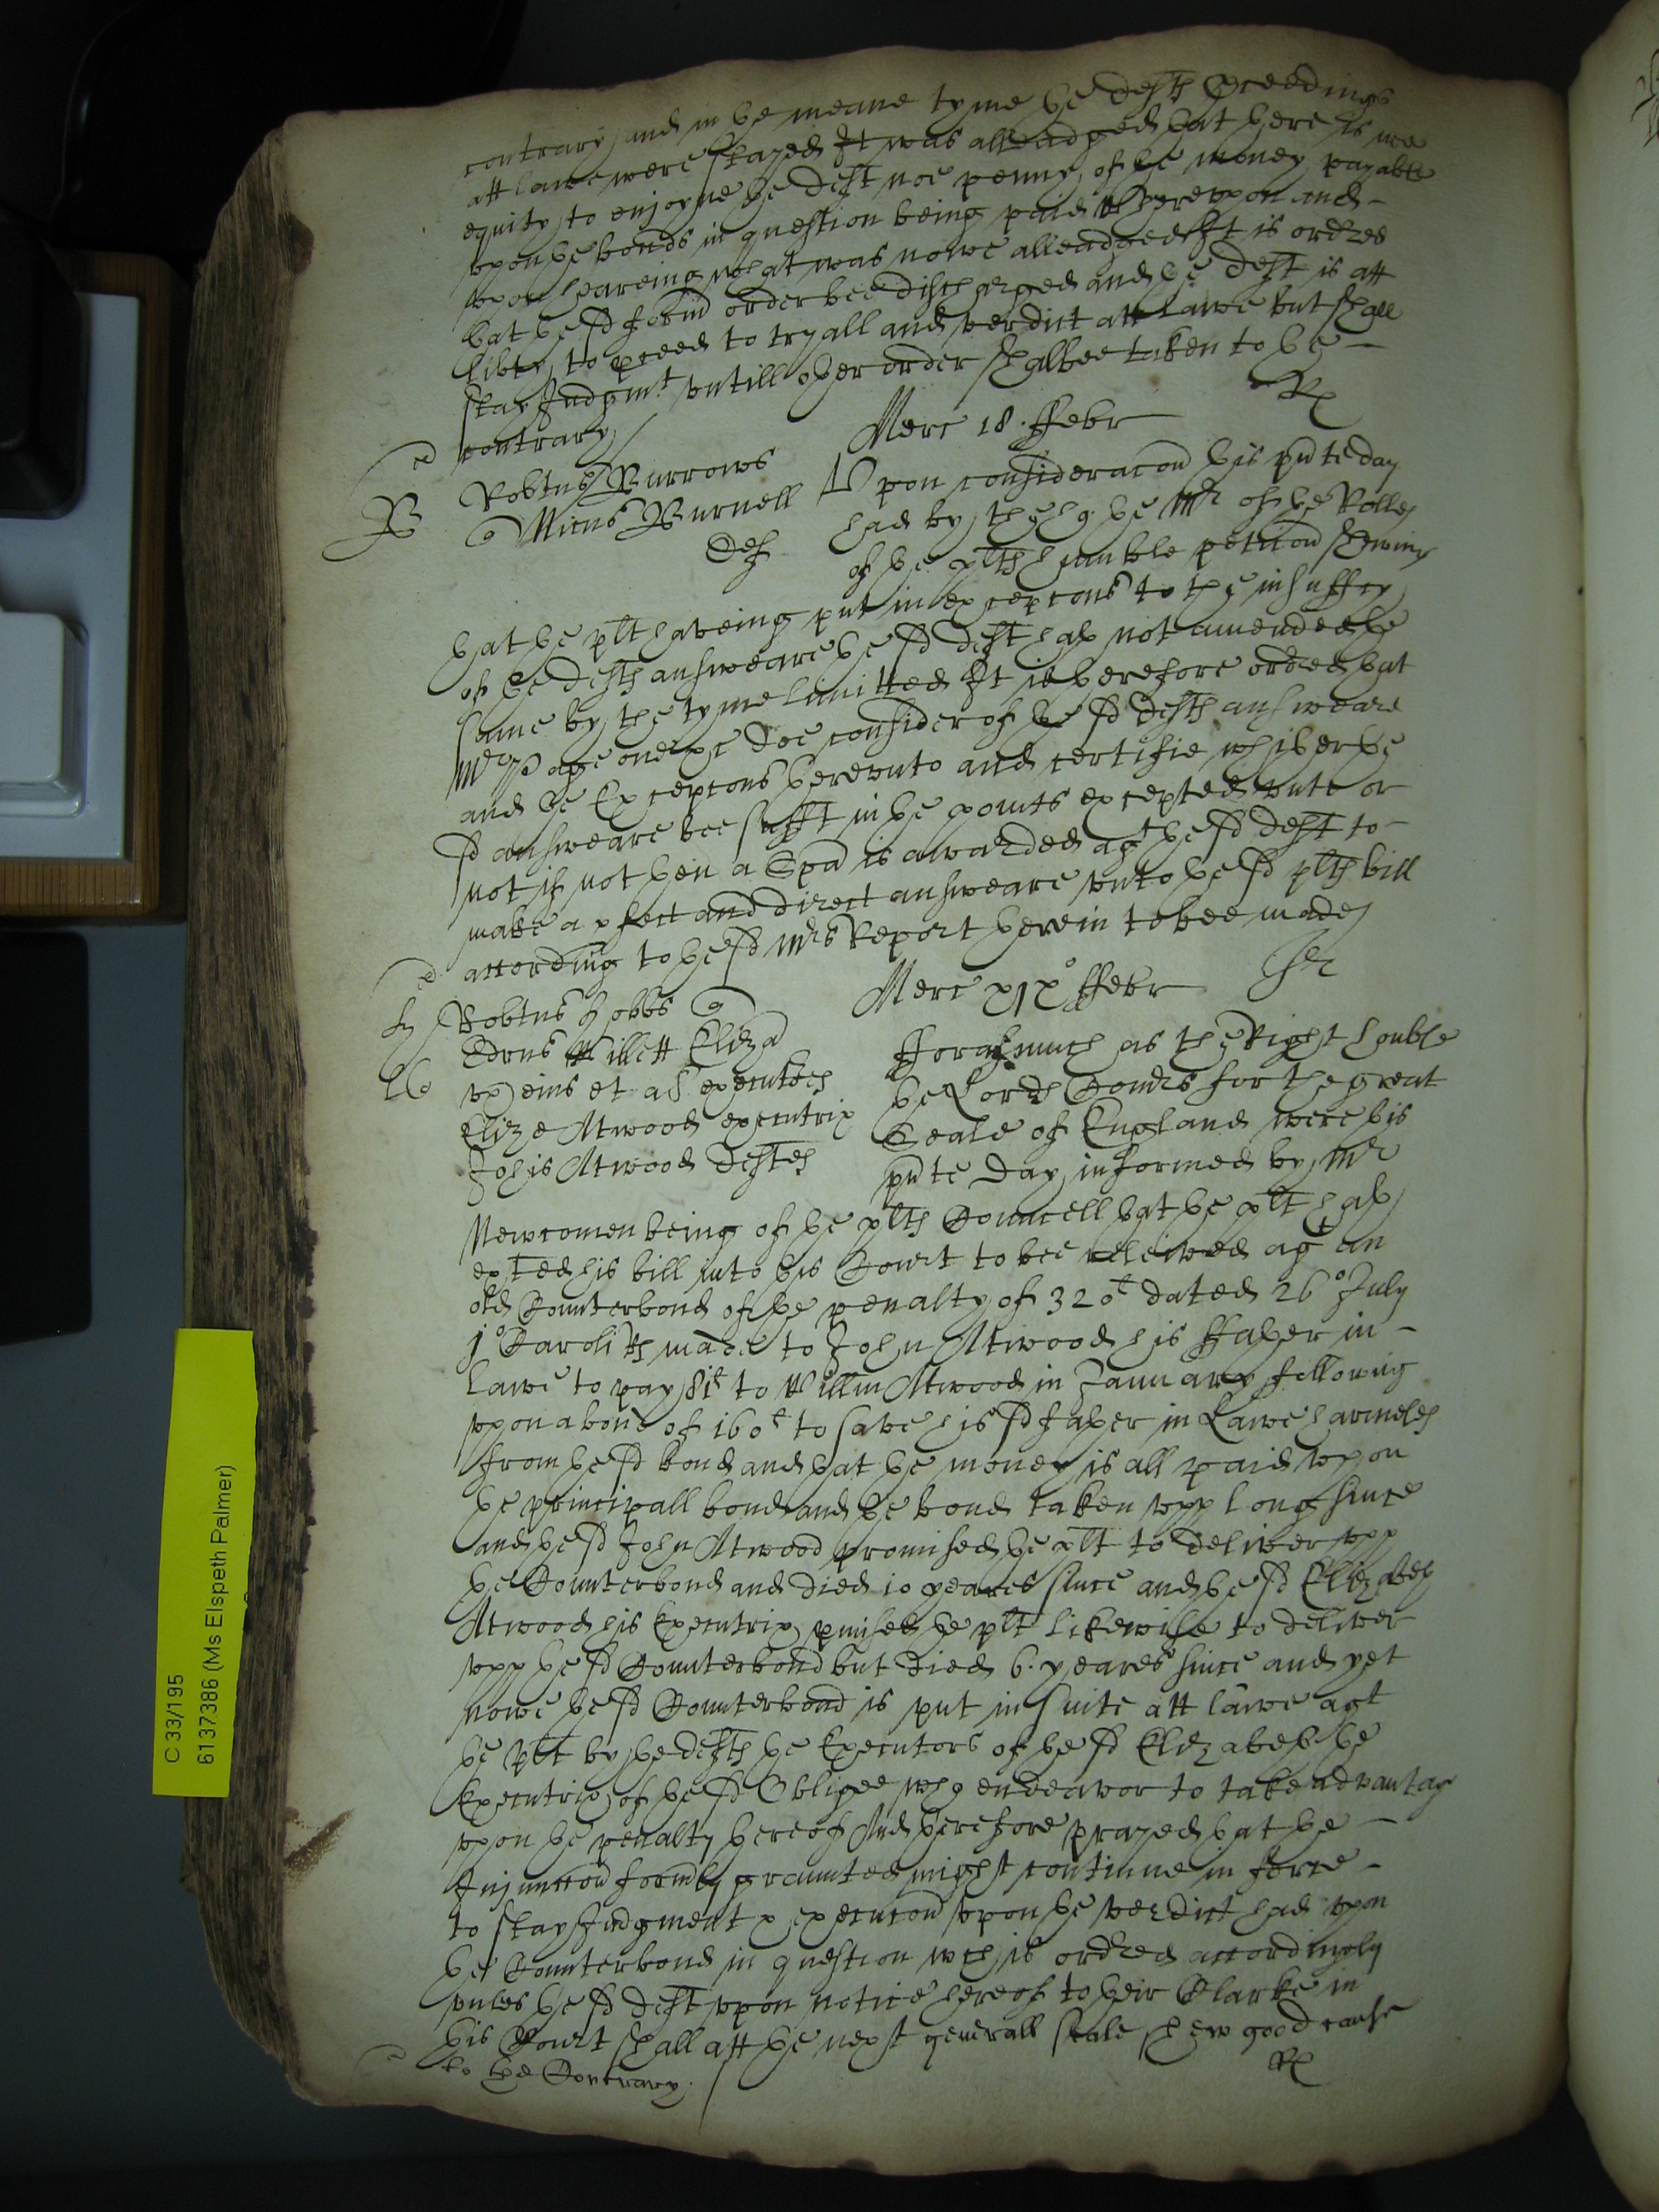 contrary and in the meane tyme the defts pceedings
att lawe were stayed It was alleadged that there is noe
equity to enjoyne the deft noe penny of the money payable
upon the bonds in question being paid Whereupon and
upon heareing what was nowe alleadged It is ordred
that the sd form̄ order bee discharged and the deft is att
libty to pceed to tryall and verdict att lawe but shall
stay Judgmt untill other order shalbee taken to the
contrary
Rp
Merc 18 ffebr
B
Robtus Burrows
Micus Burnell
Def
Upon consideracon this pnte day
had by the the Mr of the Rolles
of the plts humble peticon shewing
that the plt haveing put in excepcons to the insufficy
of the defts answeare the sd deft hath not amended the
same by the tyme limitted It is therefore ordred that
Mr Page one &c doe consider of the sd defts answeare
and the Excepcons thereunto and certifie whither the
sd answeare bee sufft in the points excepted unto or
not if not then a Spa is awarded agt the sd deft to
make a pfect and direct answeare unto the sd plts bill
according to the sd Mrs Report therein to bee made
Merc xix° ffebr
Robtus Hobbs
Edrus Willett Eliza
ux eius et al executores
Elize Atwood executrix
Johis Atwood deftes
fforasmuch as the Right honble
the Lords Comrs for the great
Seale of England were this
pnte day informed by Mr
Newcomen being of the plts Councell that the plt hath
exted his bill into this Court to bee releived agt an
old Counterbond of the penalty of 320l dated 26° July
j° Caroli Rs made to John Atwood his ffather in
lawe to pay 81l to Willm Atwood in January following
upon a bond of 160l to save his sd father in Lawe harmeles
from the sd bond and that the money is all paid upon
the principall bond and the bond taken upp long since
and the sd John Atwood promised the plt to deliver upp
the Counterbond and died 10 yeares since and the sd Elizabeth
Atwood his Executrix pmised the plt likewise to deliver
upp the sd Counterbond but died 6 yeares since and yet
nowe the sd Counterbond is put in suite att lawe agt
the plt by the defts the Executors of the sd Elizabeth the
Executrix of the sd Obligee who endeavor to take advantage
upon the penalty thereof And therefore prayed that the
Injunccon formly graunted might continue in force
to stay Judgment & execucon upon the verdict had upon
the Counterbond in question wch is ordred accordingly
unles the sd deft upon notice hereof to their Clarke in
this Court shall att the next generall seale shew good cause
to the Contrary
Rp
C 33/195
6137386 (Ms Elspeth Palmer)